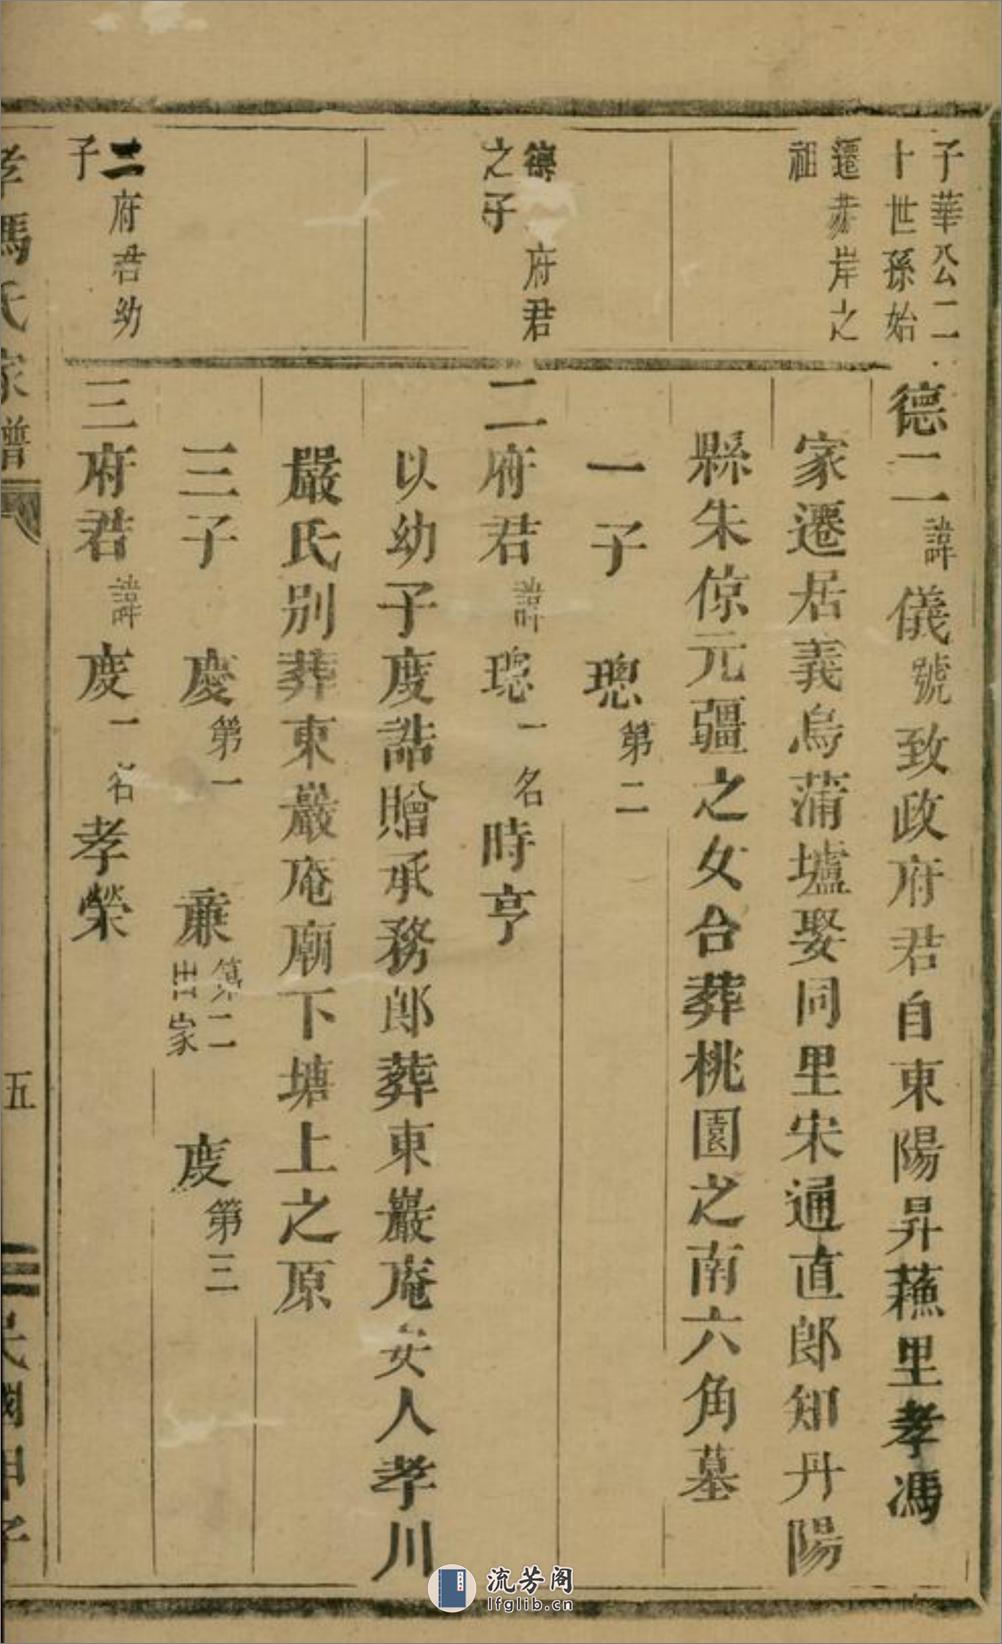 子華公二
十世孫始
遷赤岸之
祖
德二諱儀號致政府君自東陽昇蘓里孝馮
家遷居義烏蒲墟娶同里宋通直郎知丹陽
縣朱倞元疆之女合葬桃園之南六角墓
一子 璁第二
德 府君
之子
二府君諱璁一名時亨
以幼子度誥贈承務郎葬東巖庵安人孝川
嚴氏別葬東巖庵廟下塘上之原
三子 慶第一 亷第二出家 度第三
二府君幼
子
三府君諱度一名孝榮
孝馮氏家譜
五
民國甲子
流芳阁
lfglib.cn